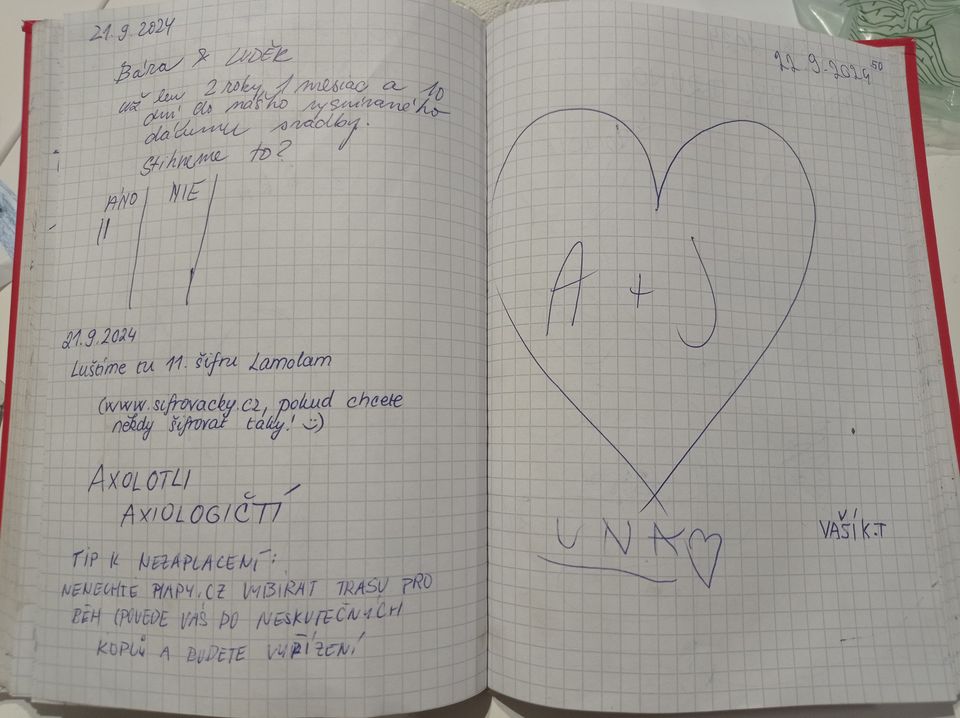 21.9.2024
Bára & LUDĚK
už len 2 roky, 1 mesiac a 10
dní do nášho vysnívaného
dátumu svadby.
Stihneme to?
ÁNO NIE
||
21.9.2024
Luštíme tu 11. šifru Lamolam
(www.sifrovacky.cz, pokud chcete
někdy šifrovat taky! :))
AXOLOTLI
AXIOLOGIČTÍ
TIP K NEZAPLACENÍ:
NENECHTE MAPY.CZ VYBÍRAT TRASU PRO
BĚH (POVEDE VÁS DO NESKUTEČNÝCH
KOPCŮ A BUDETE VYŘÍZENÍ
22.9.2024
A + J
UNA♡
VAŠÍK.T